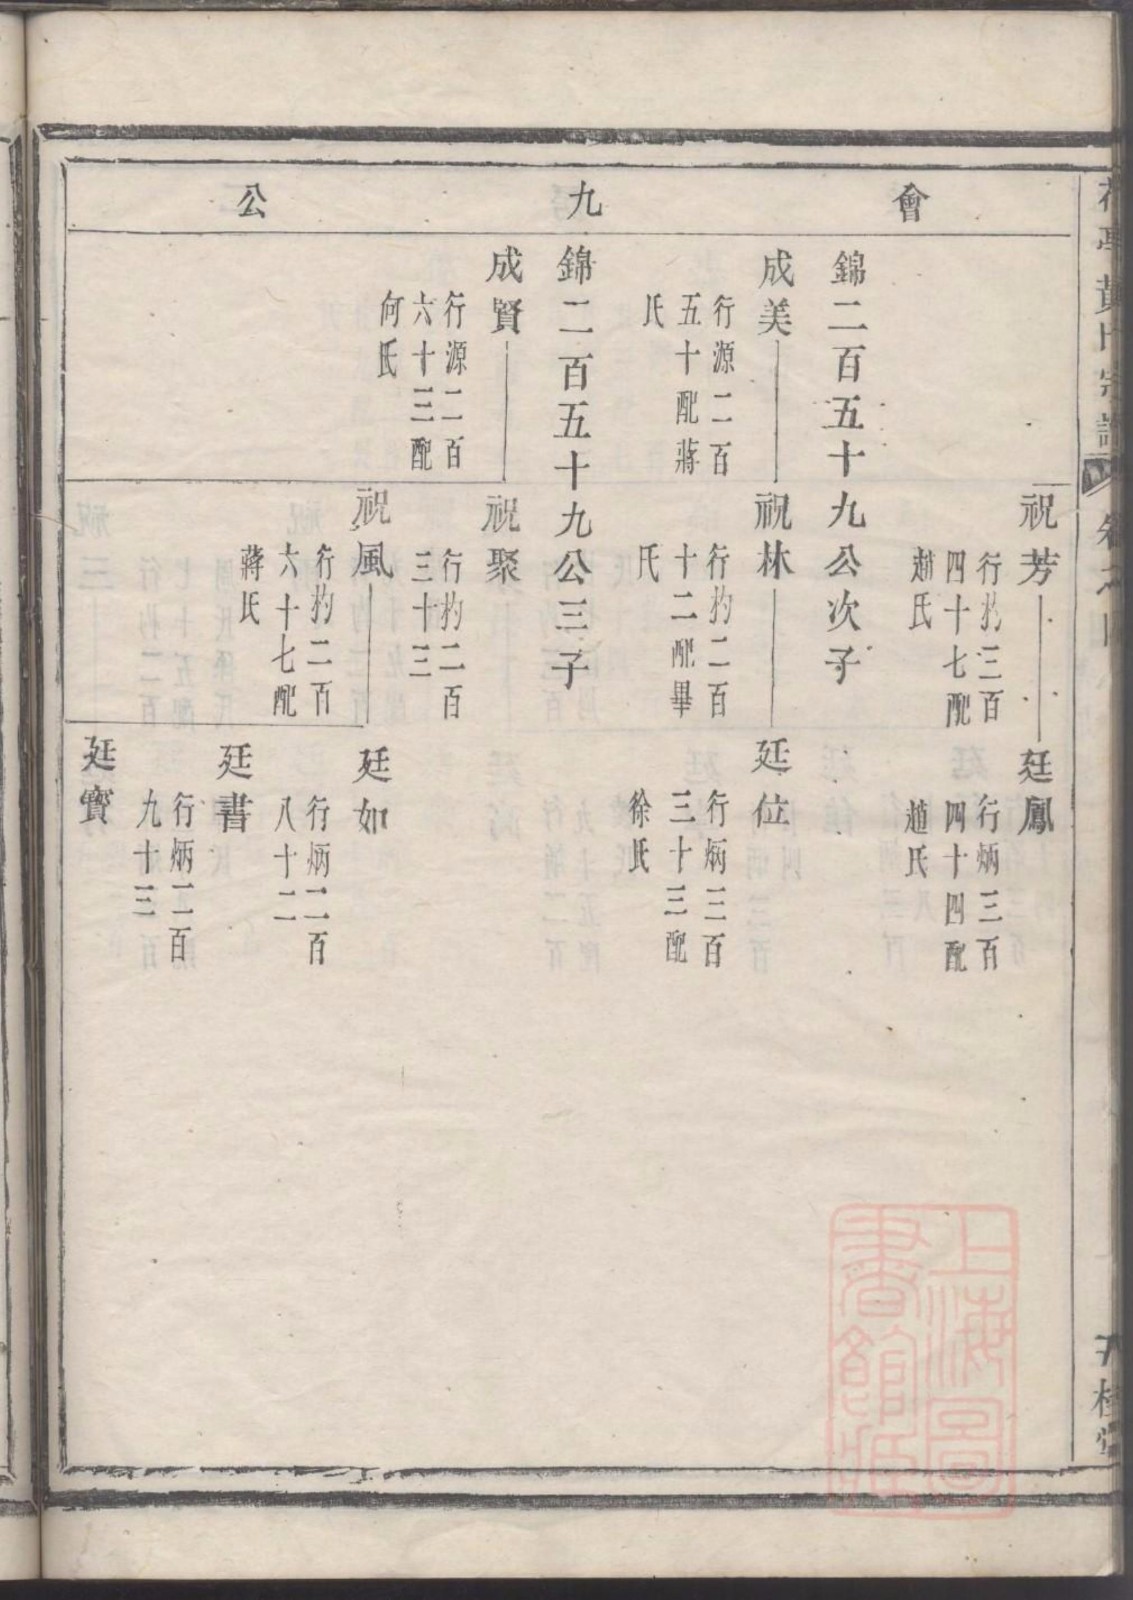 會九公
祝芳
行扚三百
四十七配
趙氏
廷鳳
行炳三百
四十四配
趙氏
錦二百五十九公次子
成美
行源二百
五十配蔣
氏
祝林
行扚二百
十二配畢
氏
廷位
行炳三百
三十三配
徐氏
錦二百五十九公三子
成賢
行源二百
六十三配
何氏
祝聚
行扚二百
三十三
祝風
行扚二百
六十七配
蔣氏
廷如
行炳二百
八十二
廷書
行炳二百
九十三
廷寶
上海圖
書館藏